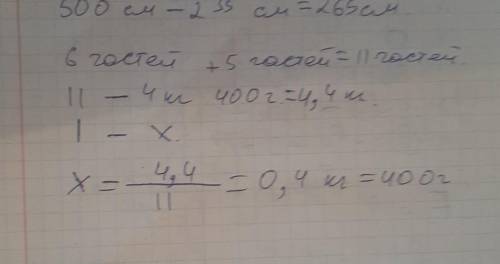 500 см - 235 см = 265 см
6 гостей + 5 гостей = 11 гостей
11 - 4 кг 400 г. = 4,4 кг.
1 - x.
x = 4,4 / 11 = 0,4 кг = 400 г